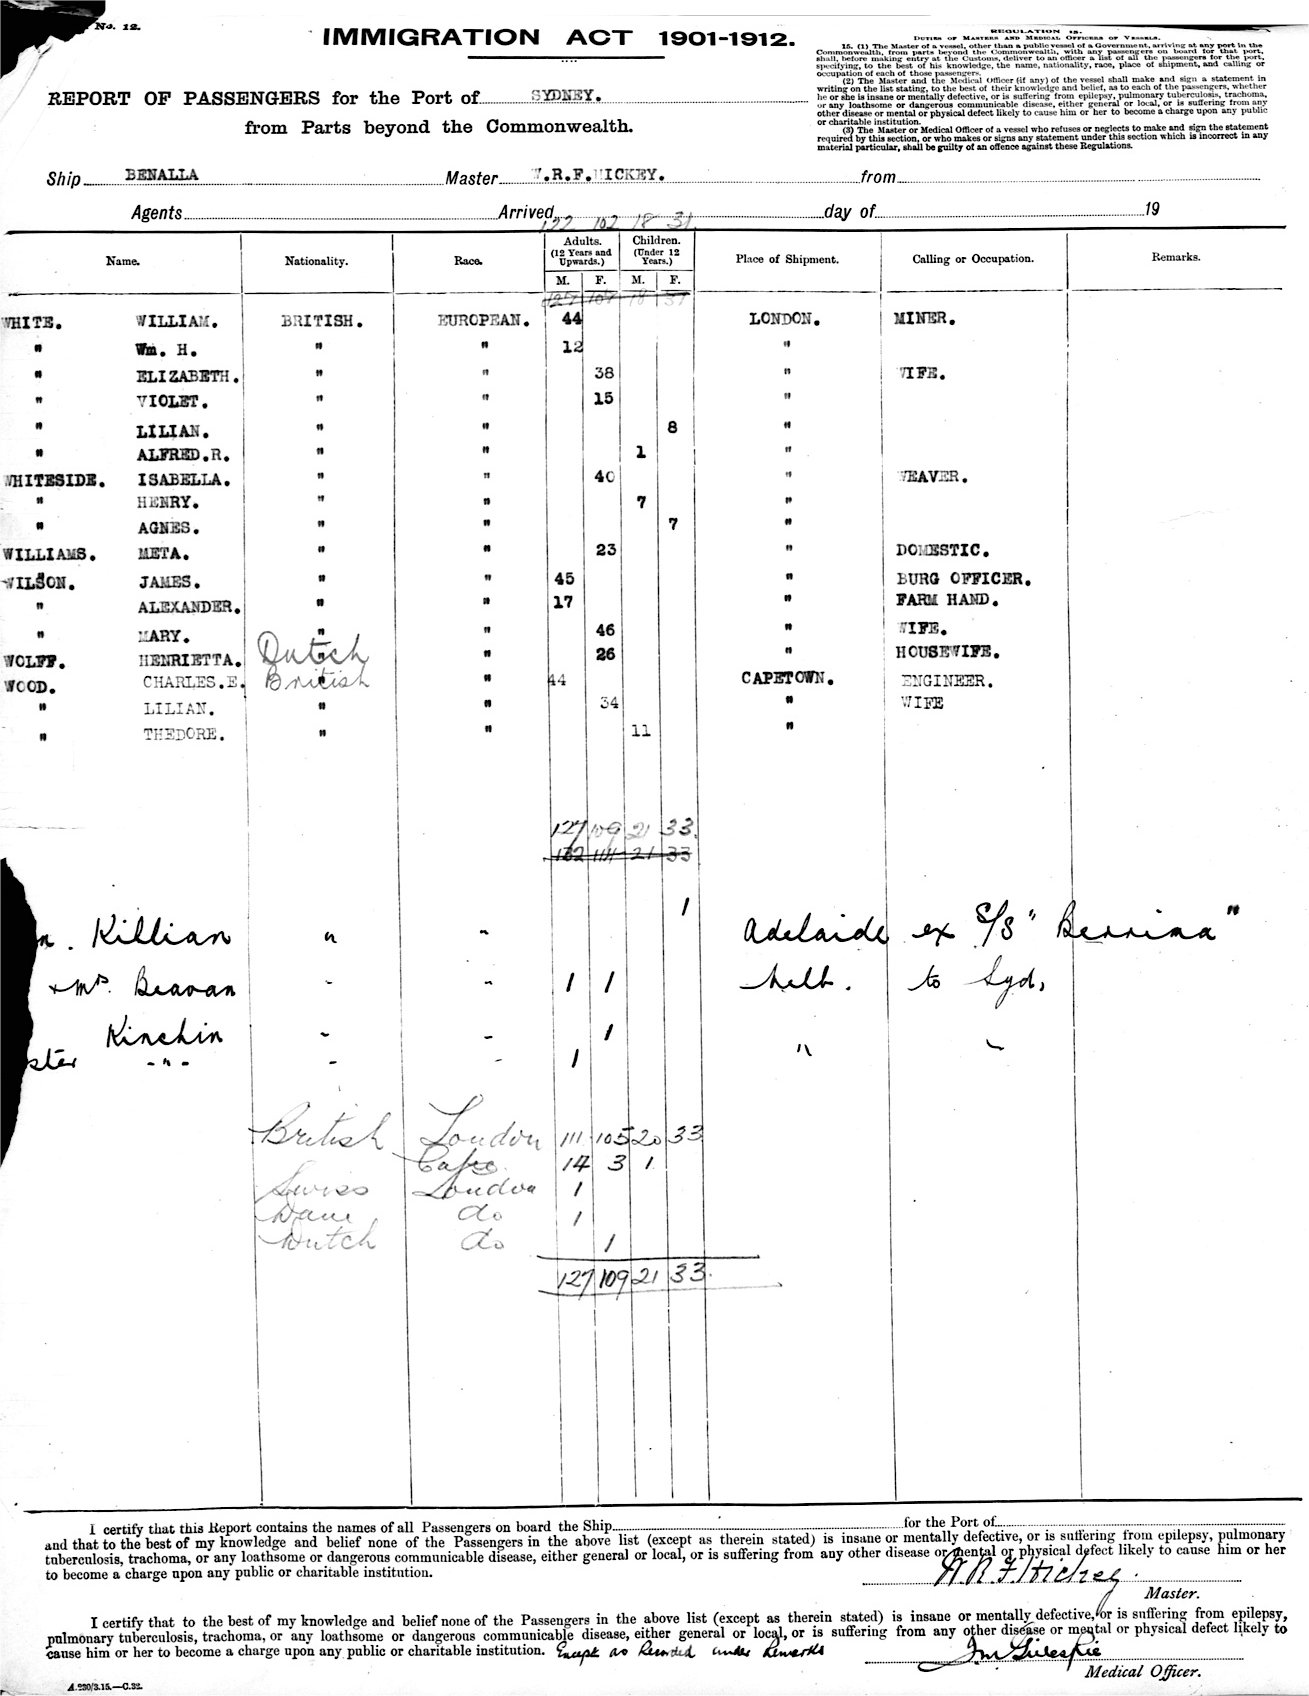 No. 12.
IMMIGRATION ACT 1901-1912.
REGULATION 15.
DUTIES OF MASTERS AND MEDICAL OFFICERS OF VESSELS.
15. (1) The Master of a vessel, other than a public vessel of a Government, arriving at any port in the
Commonwealth, from parts beyond the Commonwealth, with any passengers on board for that port,
shall, before making entry at the Customs, deliver to an officer a list of all the passengers for the port,
specifying, to the best of his knowledge, the name, nationality, race, place of shipment, and calling or
occupation of each of those passengers.
(2) The Master and the Medical Officer (if any) of the vessel shall make and sign a statement in
writing on the list stating, to the best of their knowledge and belief, as to each of the passengers, whether
he or she is insane or mentally defective, or is suffering from epilepsy, pulmonary tuberculosis, trachoma,
or any loathsome or dangerous communicable disease, either general or local, or is suffering from any
other disease or mental or physical defect likely to cause him or her to become a charge upon any public
or charitable institution.
(3) The Master or Medical Officer of a vessel who refuses or neglects to make and sign the statement
required by this section, or who makes or signs any statement under this section which is incorrect in any
material particular, shall be guilty of an offence against these Regulations.
REPORT OF PASSENGERS for the Port of SYDNEY.
from Parts beyond the Commonwealth.
Ship BENALLA Master W.R.F.HICKEY. from
Agents Arrived day of 19
122 102 18 31
Name. Nationality. Race. Adults. (12 Years and Upwards.) Children. (Under 12 Years.) Place of Shipment. Calling or Occupation. Remarks.
M. F. M. F.
WHITE. WILLIAM. BRITISH. EUROPEAN. 44 LONDON. MINER.
" Wm. H. " " 12 "
" ELIZABETH. " " 38 " WIFE.
" VIOLET. " " 15 "
" LILIAN. " " 8 "
" ALFRED.R. " " 1 "
WHITESIDE. ISABELLA. " " 40 " WEAVER.
" HENRY. " " 7 "
" AGNES. " " 7 "
WILLIAMS. META. " " 23 " DOMESTIC.
WILSON. JAMES. " " 45 " BURG OFFICER.
" ALEXANDER. " " 17 " FARM HAND.
" MARY. " " 46 " WIFE.
WOLFF. HENRIETTA. Dutch " 26 " HOUSEWIFE.
WOOD. CHARLES.E. British " 44 CAPETOWN. ENGINEER.
" LILIAN. " " 34 " WIFE
" THEDORE. " " 11 "
127 109 21 33.
132 111 21 33
1
Killian " " Adelaide ex S/S "Berrima"
+ Mrs. Beavan " " 1 1 Melb. to Syd,
Kinchin " " 1
ster - " - " " 1 " "
British London 111 105 20 33
Cape 14 3 1
Swiss London 1
Dane do 1
Dutch do 1
127 109 21 33.
I certify that this Report contains the names of all Passengers on board the Ship for the Port of
and that to the best of my knowledge and belief none of the Passengers in the above list (except as therein stated) is insane or mentally defective, or is suffering from epilepsy, pulmonary
tuberculosis, trachoma, or any loathsome or dangerous communicable disease, either general or local, or is suffering from any other disease or mental or physical defect likely to cause him or her
to become a charge upon any public or charitable institution.
W.R.F. Hickey.
Master.
I certify that to the best of my knowledge and belief none of the Passengers in the above list (except as therein stated) is insane or mentally defective, or is suffering from epilepsy,
pulmonary tuberculosis, trachoma, or any loathsome or dangerous communicable disease, either general or local, or is suffering from any other disease or mental or physical defect likely to
cause him or her to become a charge upon any public or charitable institution. Except as Recorded under Remarks
Jm Gillespie
Medical Officer.
A.230/3.15.—C.32.